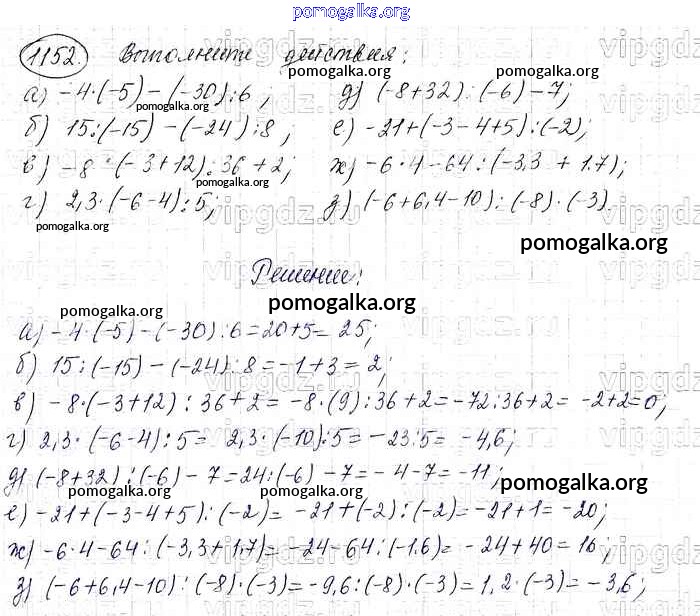 pomogalka.org
1152. Выполните действия:
а) -4·(-5)-(-30):6; д) (-8+32):(-6)-7;
б) 15:(-15)-(-24):8; е) -21+(-3-4+5):(-2);
в) -8·(-3+12):36+2; ж) -6·4-64:(-3,3+1.7);
г) 2,3·(-6-4):5; з) (-6+6,4-10):(-8)·(-3).
pomogalka.org
Решение:
pomogalka.org
а) -4·(-5)-(-30):6=20+5=25;
б) 15:(-15)-(-24):8=-1+3=2;
в) -8·(-3+12):36+2=-8·(9):36+2=-72:36+2=-2+2=0;
г) 2,3·(-6-4):5=2,3·(-10):5=-23:5=-4,6;
д) (-8+32):(-6)-7=24:(-6)-7=-4-7=-11;
pomogalka.org
е) -21+(-3-4+5):(-2)=-21+(-2):(-2)=-21+1=-20;
ж) -6·4-64:(-3,3+1,7)=-24-64:(-1.6)=-24+40=16;
з) (-6+6,4-10):(-8)·(-3)=-9,6:(-8)·(-3)=1,2·(-3)=-3,6;